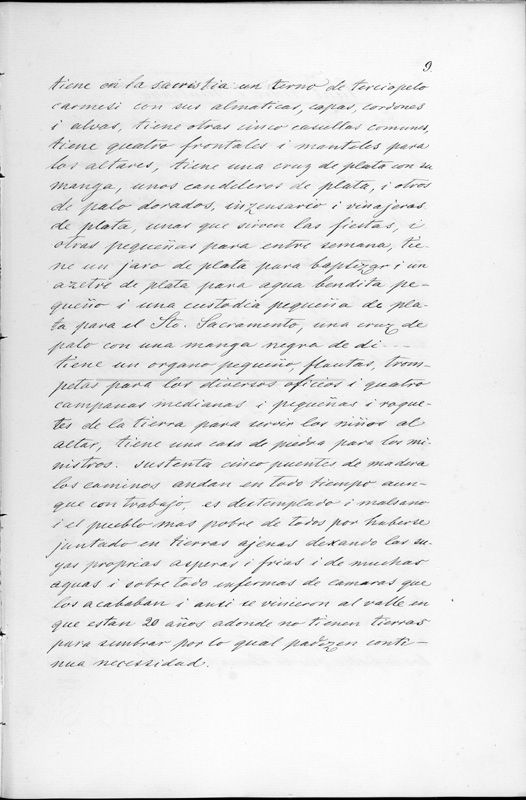 9.
tiene en la sacristia un terno de terciopelo
carmesi con sus almaticas, capas, cordones
i alvas, tiene otras cinco casullas comunes,
tiene quatro frontales i manteles para
los altares, tiene una cruz de plata con su
manga, unos candeleros de plata, i otros
de palo dorados, inzensario i vinajeras
de plata, unas que sirven las fiestas, i
otras pequeñas para entre semana, tie-
ne un jaro de plata para baptizar i un
azetre de plata para agua bendita pe-
queño i una custodia pequeña de pla-
ta para el Sto. Sacramento, una cruz de
palo con una manga negra de di....
tiene un organo pequeño, flautas, trom-
petas para los diversos oficios i quatro
campanas medianas i pequeñas i roque-
tes de la tierra para servir los niños al
altar, tiene una casa de piedra para los mi-
nistros. sustenta cinco puentes de madera
los caminos andan en todo tiempo aun-
que con trabajo, es destemplado i malsano
i el pueblo mas pobre de todos por haberse
juntado en tierras ajenas dexando las su-
yas proprias asperas i frias i de muchas
aguas i sobre todo enfermos de camaras que
los acababan i ansi se vinieron al valle en
que estan 20 años adonde no tienen tierras
para sembrar por lo qual padezen conti-
nua necessidad.